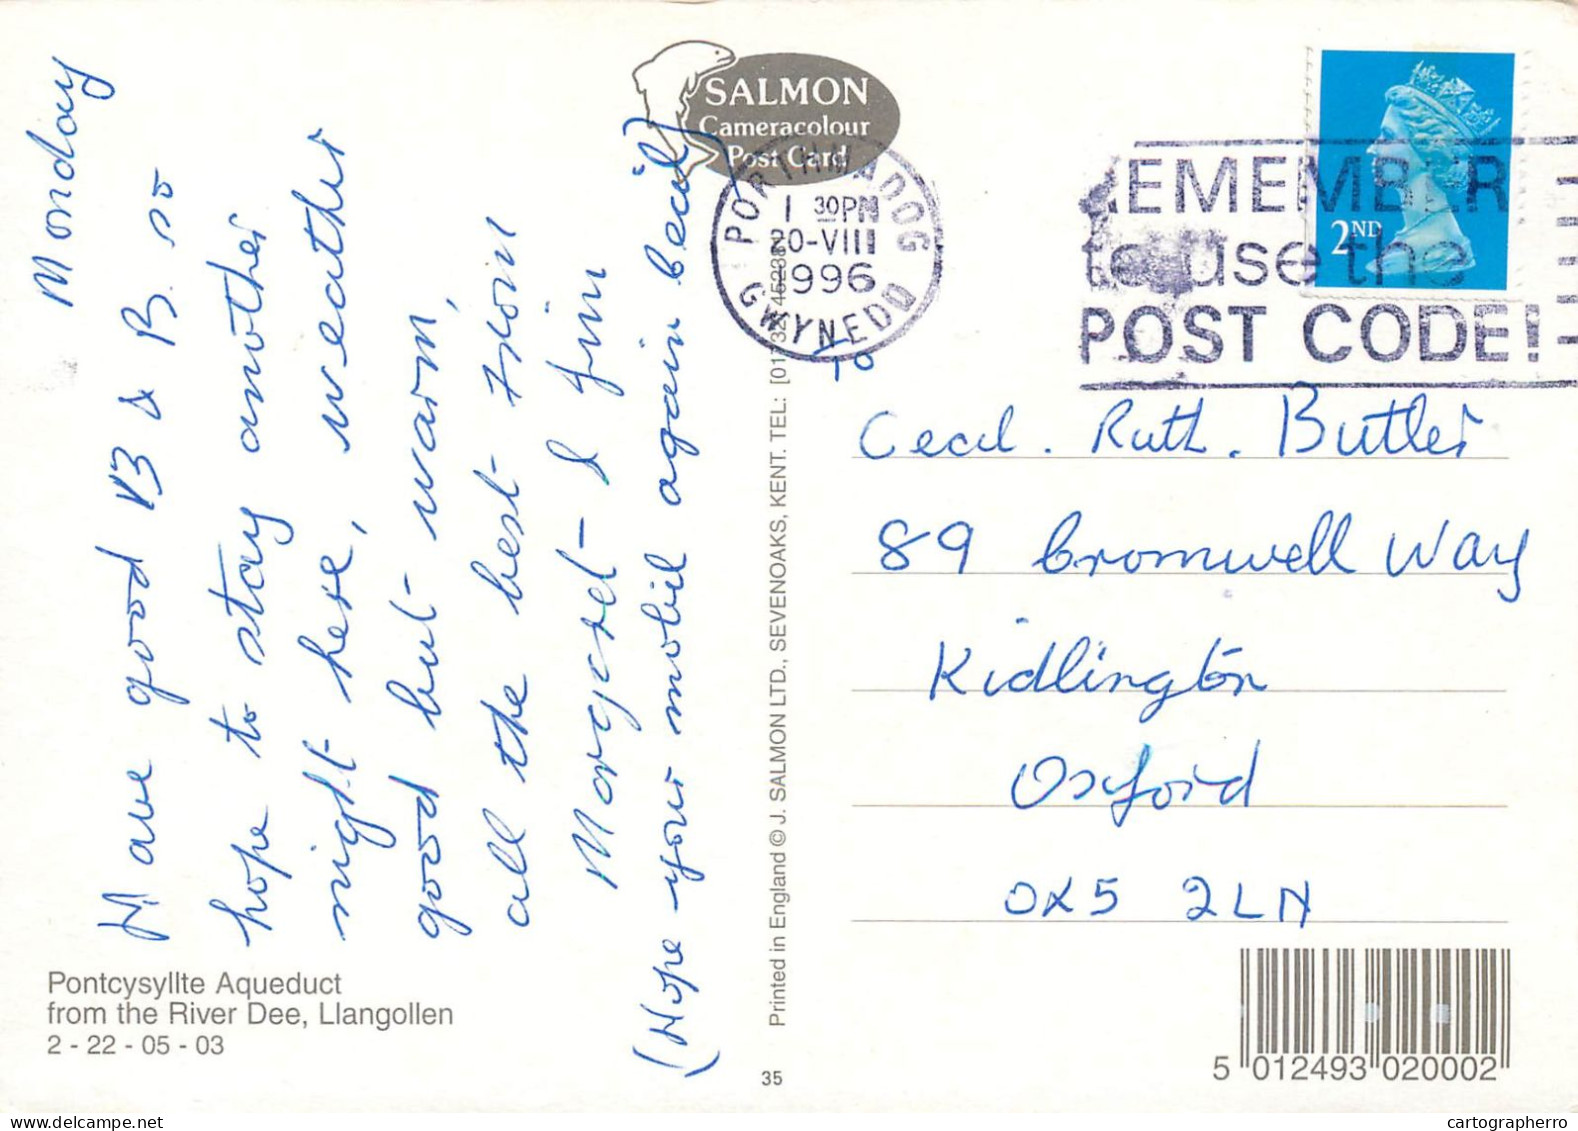 Monday
Have good B & B. so
hope to stay another
night here, weather
good but warm,
all the best from
Margret & Jim
(Hope your mobil again Cecil)
Pontcysyllte Aqueduct
from the River Dee, Llangollen
2 - 22 - 05 - 03
SALMON
Cameracolour
Post Card
Printed in England © J. SALMON LTD., SEVENOAKS, KENT. TEL: [01732
35
PORTHMADOG
1 30PM
20-VIII
1996
GWYNEDD
REMEMBER
to use the
POST CODE!
2ND
To
Cecil. Ruth. Butler
89 Cromwell Way
Kidlington
Oxford
OX5 2LN
5 012493 020002
cartographerro